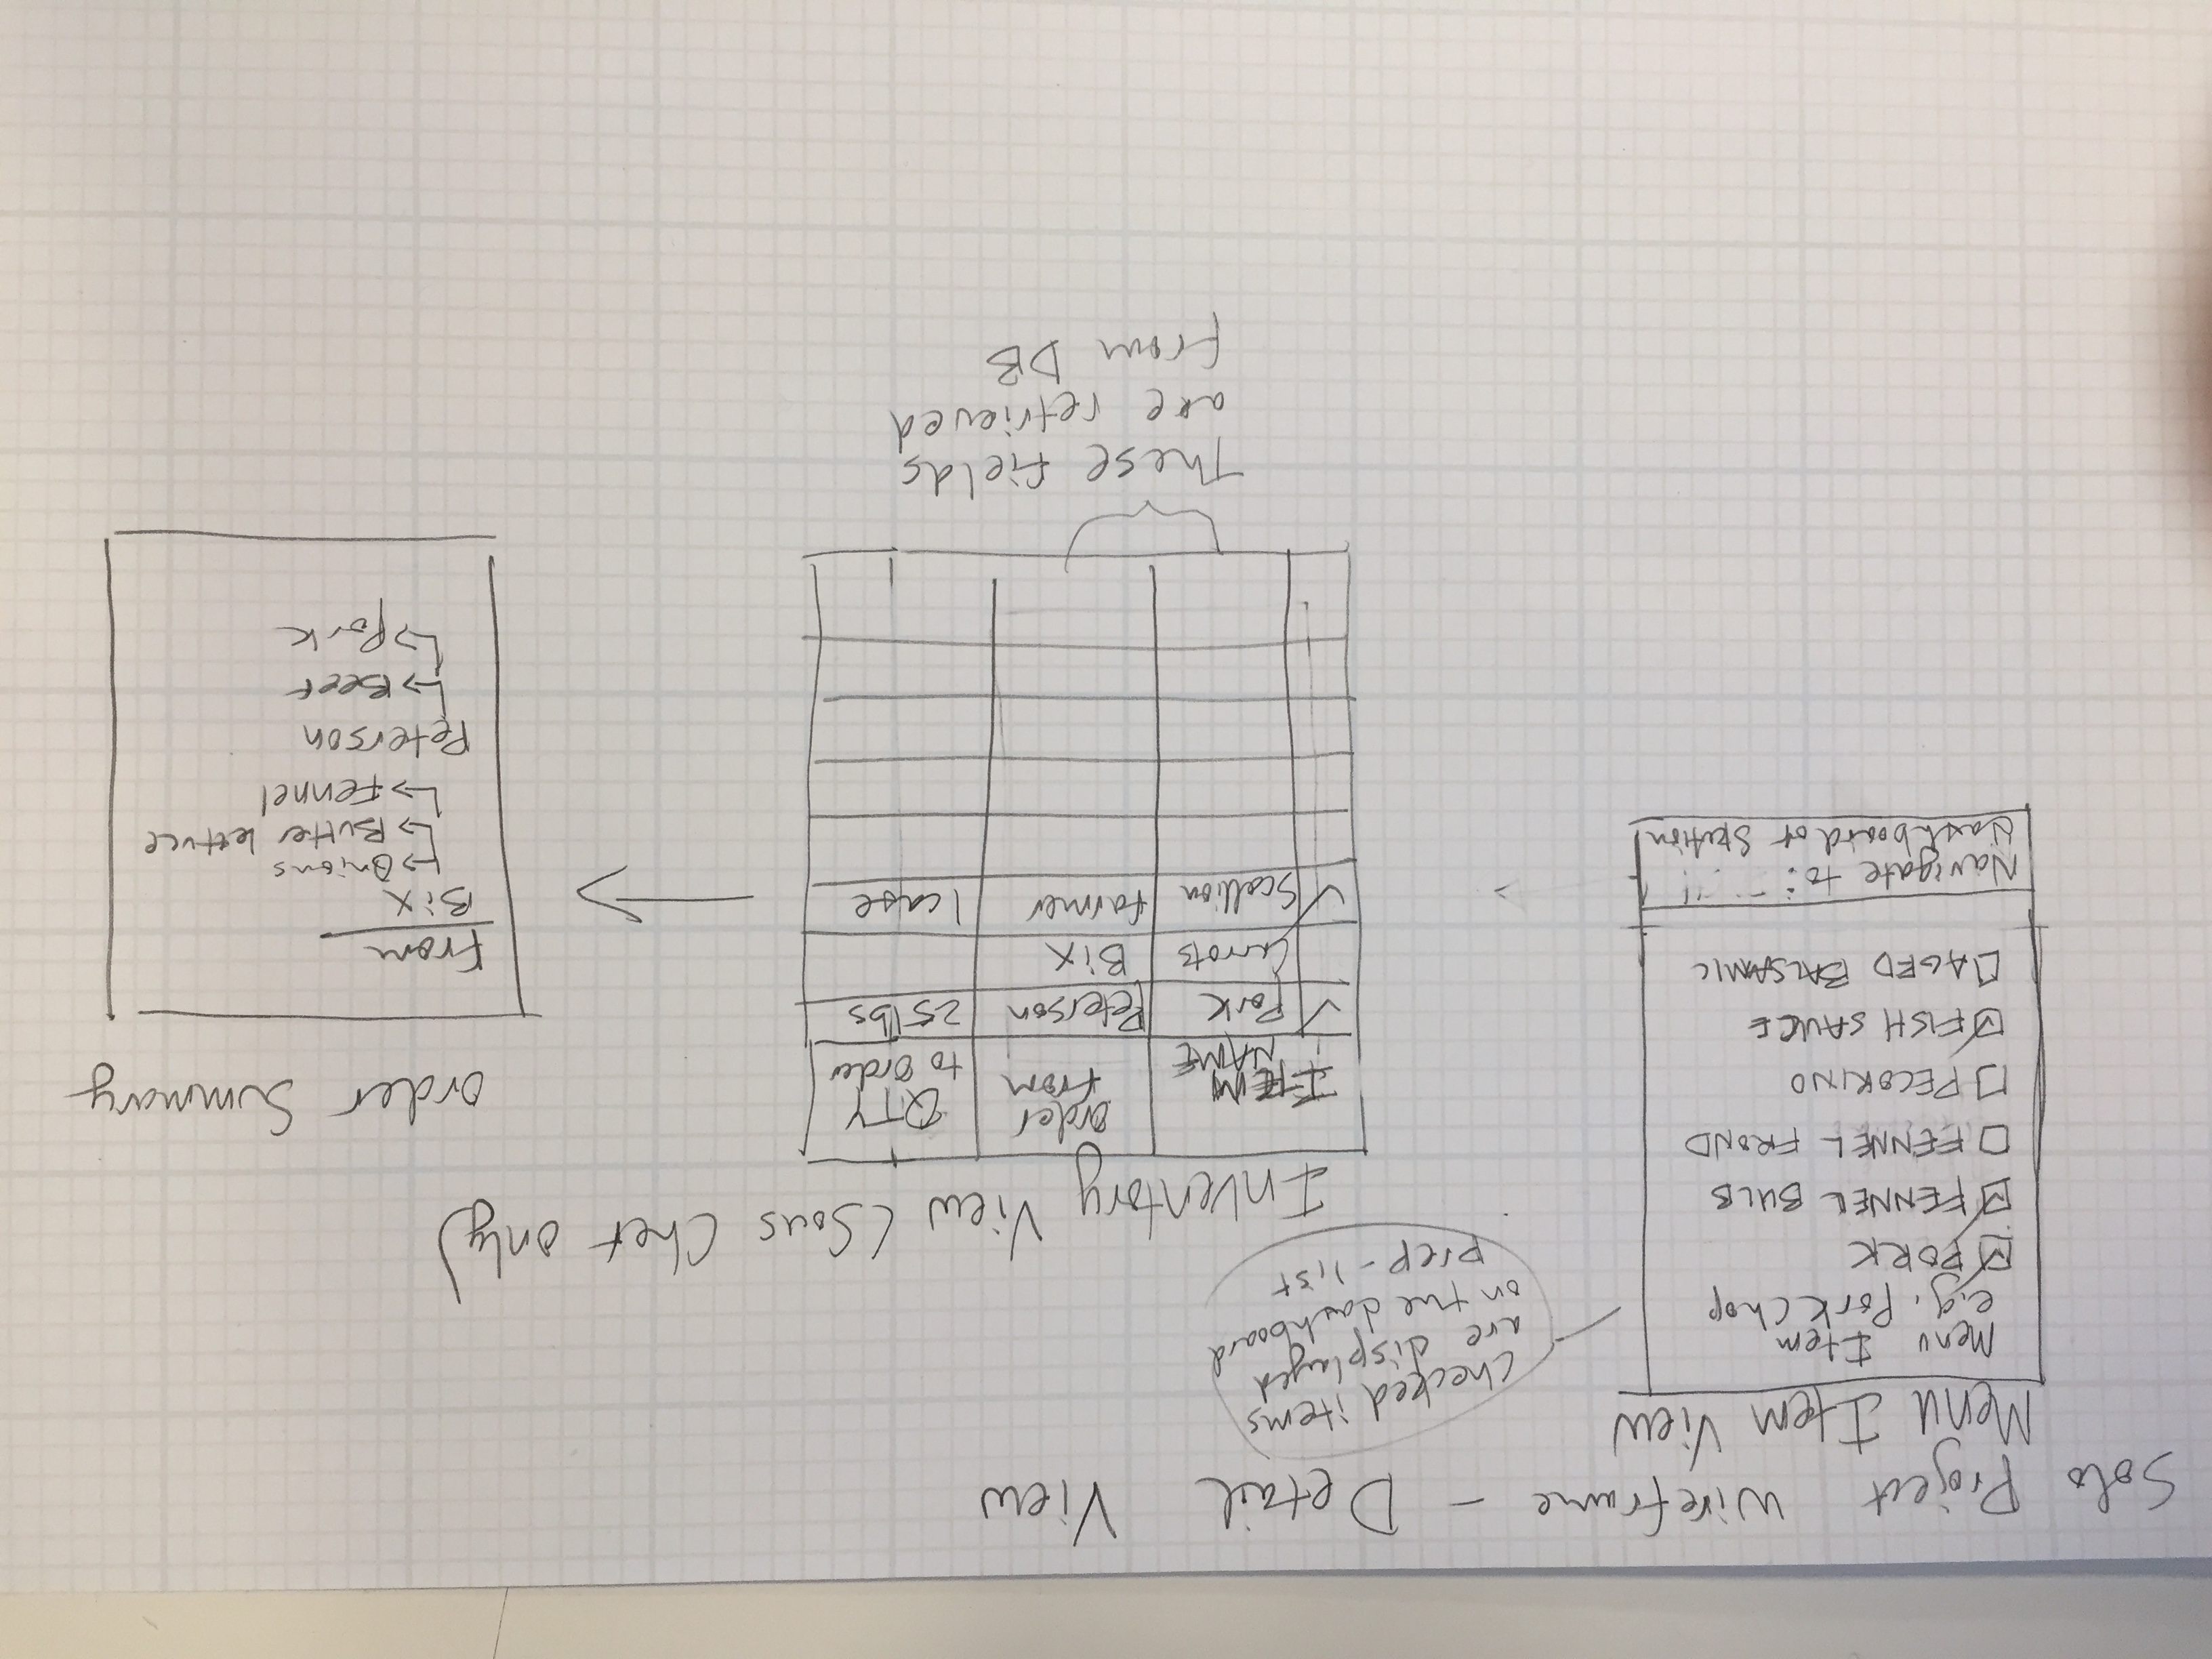 Solo Project Wireframe - Detail View
Menu Item View
Menu Item
e.g. Pork Chop
PORK
FENNEL BULB
FENNEL FROND
PECORINO
FISH SAUCE
AGED BALSAMIC
Navigate to:
dashboard or Station
checked items
are displayed
on the dashboard
prep-list
Inventory View (Sous Chef only)
ITEM NAME Order from QTY to order
✓ Pork Peterson 25 lbs
Carrots Bix
✓ Scallion farmer 1 case
These fields
are retrieved
from DB
Order Summary
From
Bix
↳ Onions
↳ Butter lettuce
↳ Fennel
Peterson
↳ Beef
↳ Pork